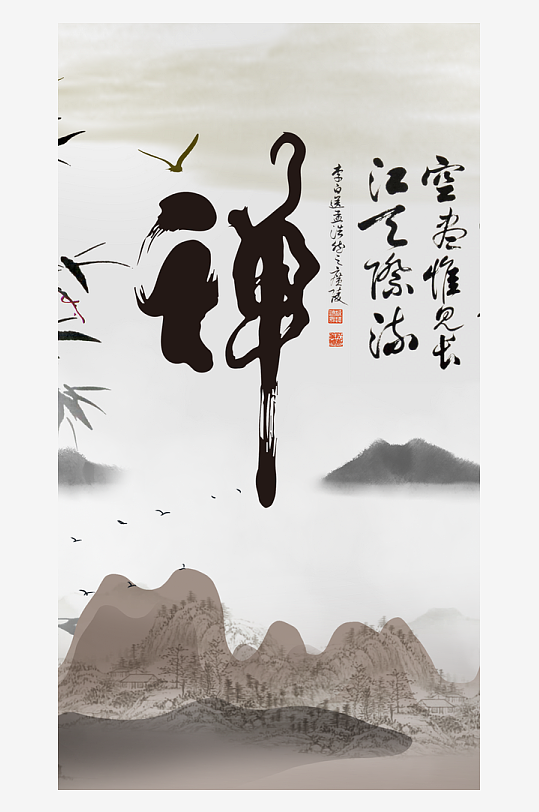 空尽惟见长
江天际流
李白送孟浩然之广陵
禅